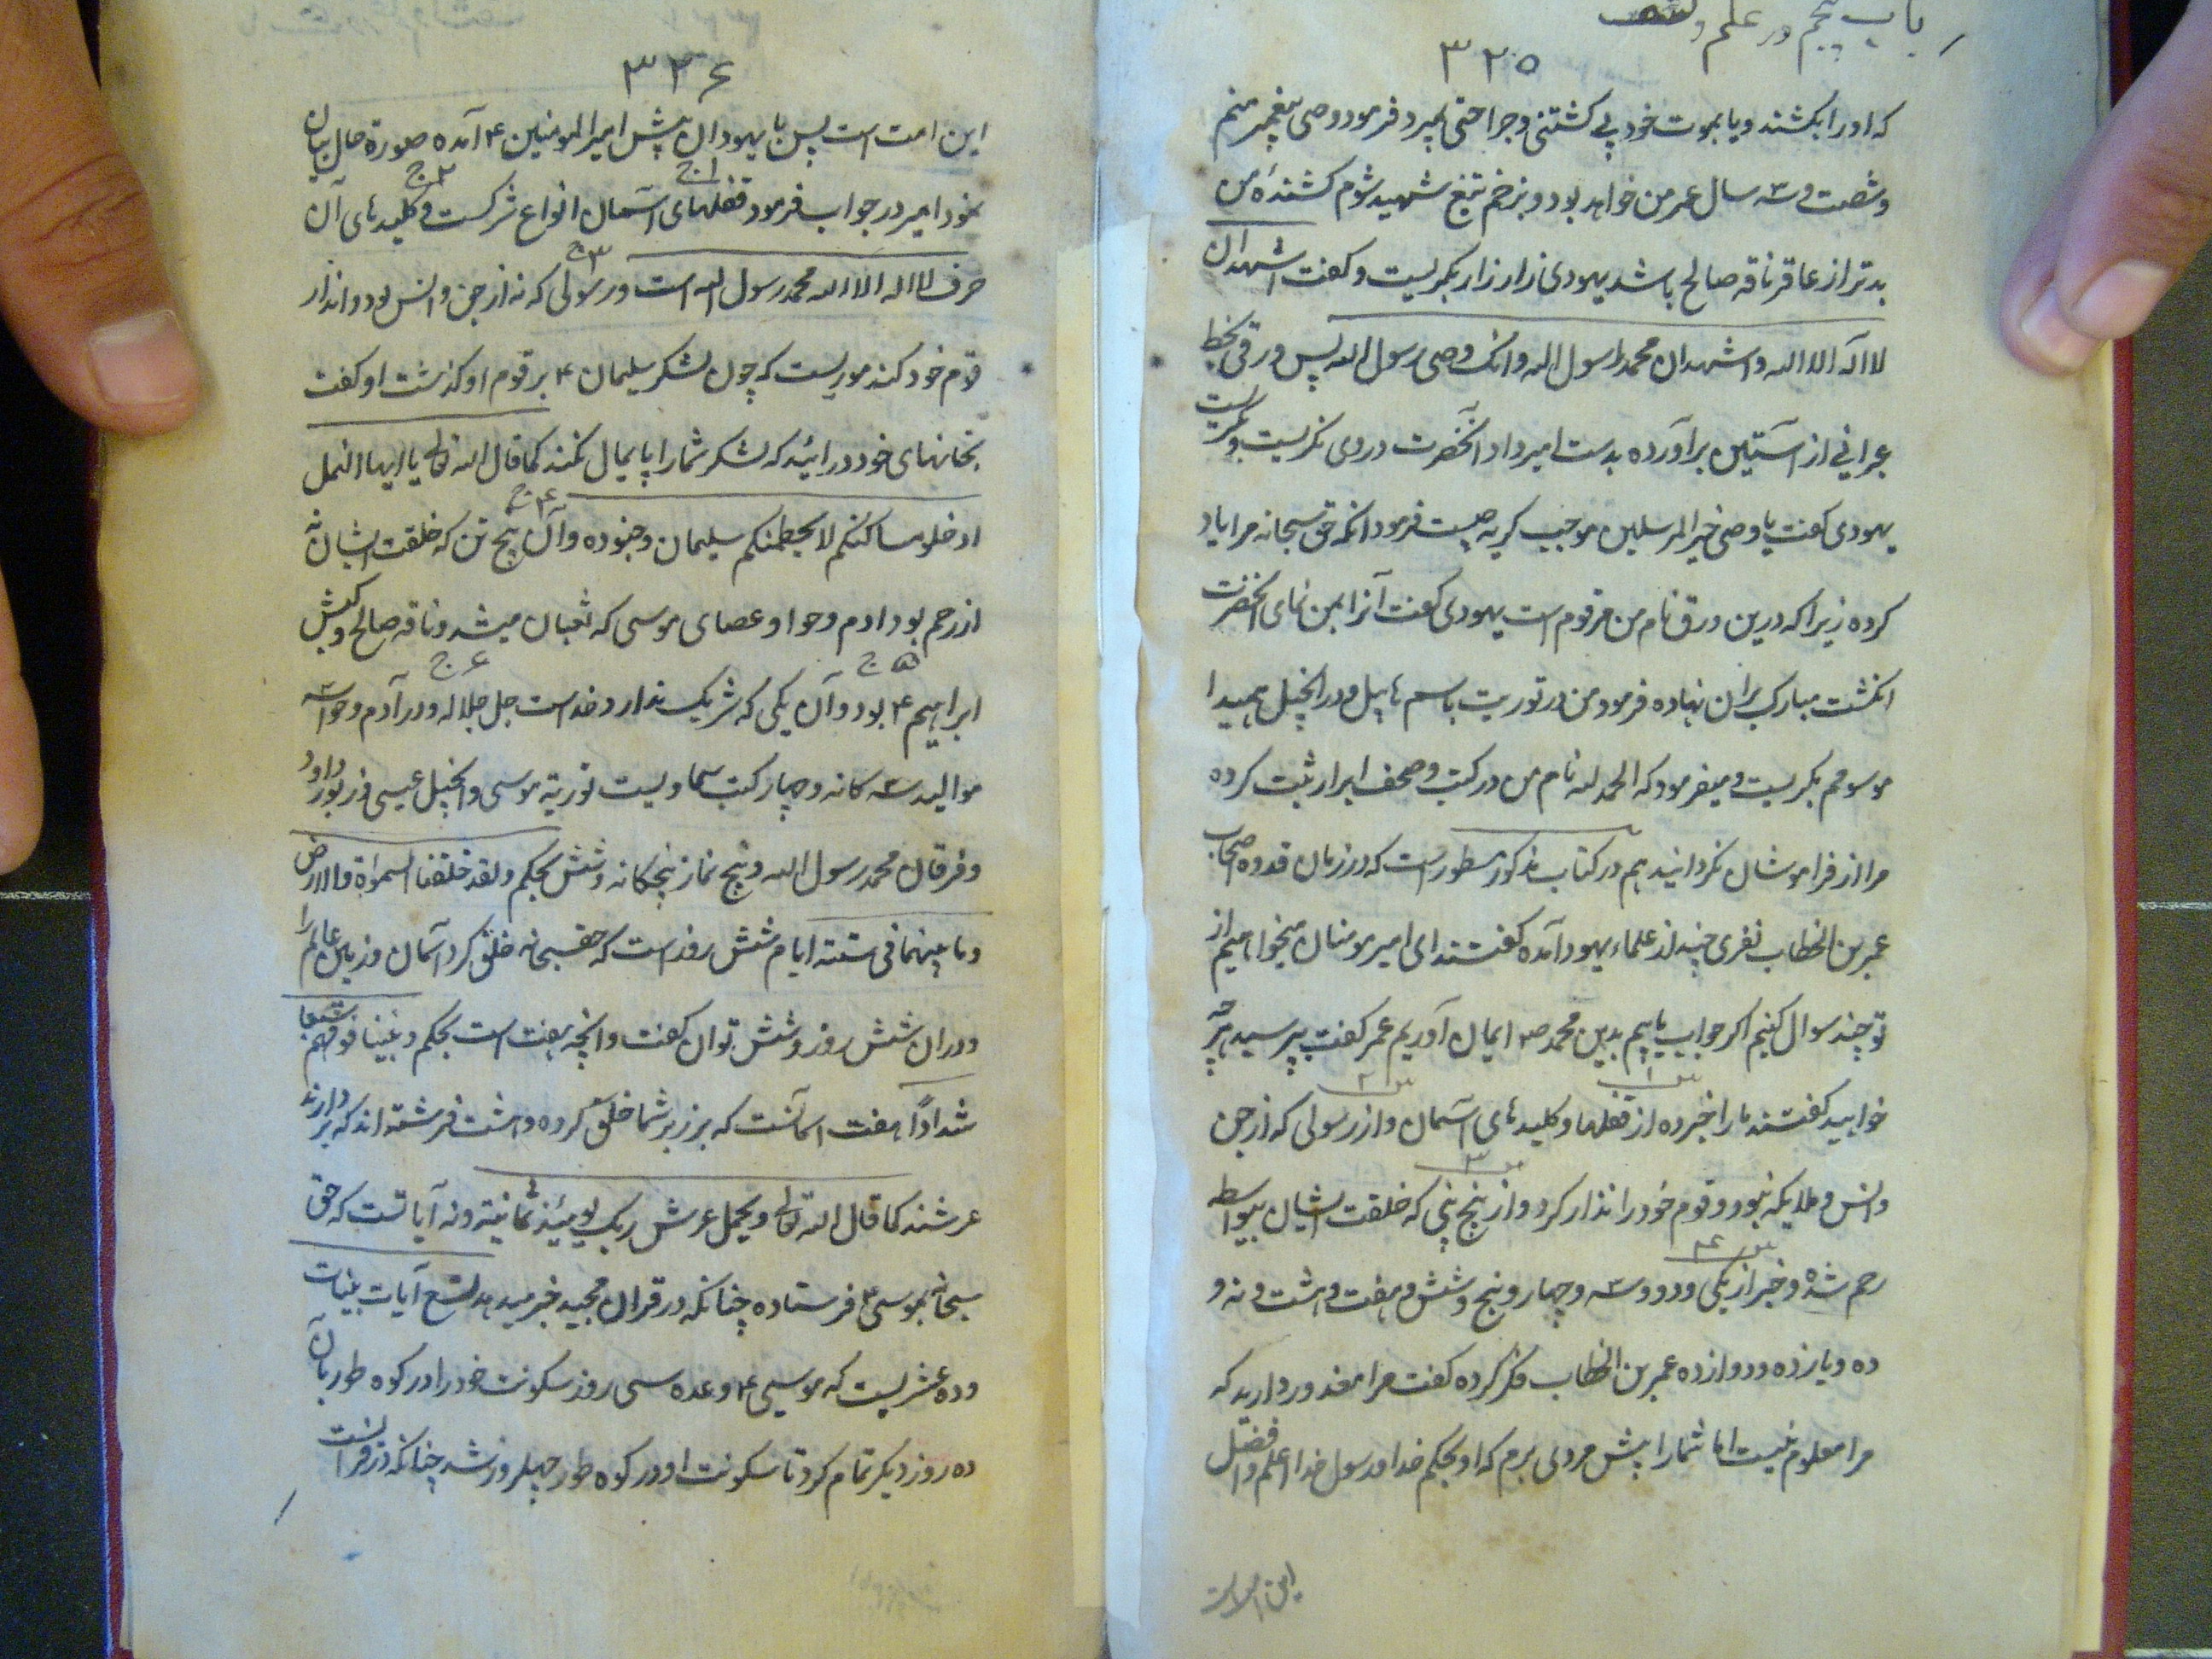 باب پنجم در علم و کشف
۳۲۵
که او را بکشند و یا بموت خود بی کشتنی و جراحتی بمیرد فرمود وصی پیغمبر منم
و شصت و سه سال عمر من خواهد بود و بزخم تیغ شهید شوم کشندهٔ من
بدتر از عاقر ناقه صالح باشد یهودی زار زار بگریست و گفت اشهد ان
لا اله الا الله و اشهد ان محمدا رسول الله و انک وصی رسول الله پس ورقی بخط
عبرانی از آستین برآورده بدست امیر داد آنحضرت در وی نگریست و بگریست
یهودی گفت یا وصی خیر المرسلین موجب گریه چیست فرمود آنکه حق سبحانه مرا یاد
کرده زیرا که درین ورق نام من مرقوم است یهودی گفت آنرا بمن نمای آنحضرت
انگشت مبارک بران نهاده فرمود من در توریت باسم هابیل و در انجیل بهیدا
موسومم بگریست و میفرمود که الحمد لله نام من در کتب و صحف ابرار ثبت کرده
مرا از فراموشان نگردانید هم در کتاب مذکور مسطور است که در زمان قدوه اصحاب
عمر بن الخطاب نفری چند از علماء یهود آمده گفتند ای امیر مومنان میخواهیم از
تو چند سوال کنیم اگر جواب یابیم بدین محمد ص ایمان آوریم عمر گفت بپرسید هرچه
س ۱ س ۲
خواهید گفتند ما را خبر ده از قفلها و کلیدهای آسمان و از رسولی که از جن
س ۳
و انس و ملایکه نبود و قوم خود را انذار کرد و از پنج تنی که خلقت ایشان بیواسطه
س ۴
رحم شده و خبر از یکی و دو و سه و چهار و پنج و شش و هفت و هشت و نه و
ده و یازده و دوازده عمر بن الخطاب فکر کرده گفت مرا معذور دارید که
مرا معلوم نیست اما شما را پیش مردی برم که او بحکم خدا و رسول خدا اعلم و افضل
این امت است
۳۲۶
این امت است پس با یهودان پیش امیر المومنین ۴ آمده صورة حال بیان
۱ ج ۲ ج
نمود امیر در جواب فرمود قفلهای آسمان انواع شرکست و کلیدهای آن
۳ ج
حرف لا اله الا الله محمد رسول الله است و رسولی که نه از جن و انس بود و انذار
قوم خود کند موریست که چون لشکر سلیمان ۴ بر قوم او گذشت او گفت
بخانهای خود درائید که لشکر شما را پایمال نکنند کما قال الله تعالی یا ایها النمل
۴ ج
ادخلوا مساکنکم لا یحطمنکم سلیمان و جنوده و آن پنج تن که خلقت ایشان نه
از رحم بود ادم و حوا و عصای موسی که ثعبان میشد و ناقه صالح و کبش
۵ ج ۶ ج
ابراهیم ۴ بود و آن یکی که شریک ندارد خداست جل جلاله و دو آدم و حوا و سه
موالید سه کانه و چهار کتب سماویست توریة موسی و انجیل عیسی و زبور داود
و فرقان محمد رسول الله و پنج نماز پنجگانه و شش بحکم و لقد خلقنا السموات و الارض
و ما بینهما فی ستة ایام شش روز است که حقسبحانه خلق کرد آسمان و زمین عالم را
و دران شش روز و شش توان گفت و آنچه هفت است بحکم و بنینا فوقکم سبعا
شدادا هفت آسمانست که بر زبر شما خلق کرده و هشت فرشته اند که بردارند
عرشند کما قال الله تعالی و یحمل عرش ربک یومئذ ثمانیة و نه آیاتست که حق
سبحانه بموسی ۴ فرستاده چنانکه در قران مجید خبر میدهد تسع آیات بینات
و ده عشریست که موسی ۴ وعده سی روز سکونت خود را در کوه طور بآن
ده روز دیگر تمام کرد تا سکونت او در کوه طور چهل روز شد چنانکه در قرآنست